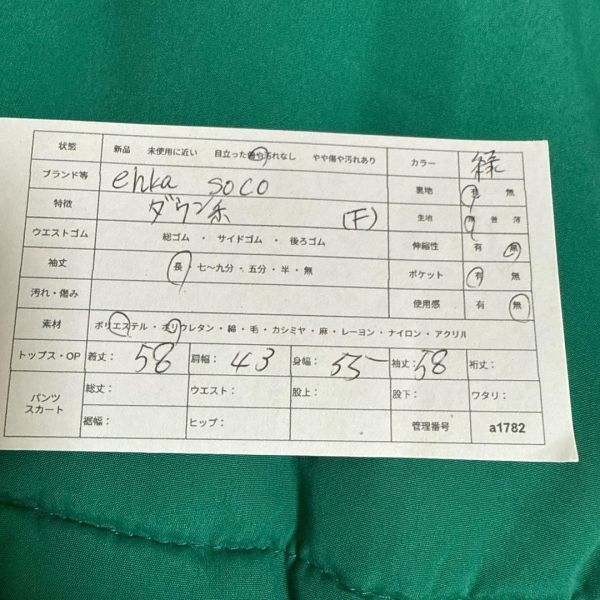 状態 新品 未使用に近い 目立った傷や汚れなし やや傷や汚れあり カラー 緑
ブランド等 ehka SOCO 裏地 有 無
特徴 ダウン系 (F) 生地 厚 普 薄
ウエストゴム 総ゴム ・ サイドゴム ・ 後ろゴム 伸縮性 有 無
袖丈 長 ・ 七~九分 ・ 五分 ・ 半 ・ 無 ポケット 有 無
汚れ・傷み 使用感 有 無
素材 ポリエステル ・ ポリウレタン ・ 綿 ・ 毛 ・ カシミヤ ・ 麻 ・ レーヨン ・ ナイロン ・ アクリル
トップス・OP 着丈: 58 肩幅: 43 身幅: 55 袖丈: 58 裄丈:
パンツ スカート 総丈: ウエスト: 股上: 股下: ワタリ:
裾幅: ヒップ: 管理番号 a1782